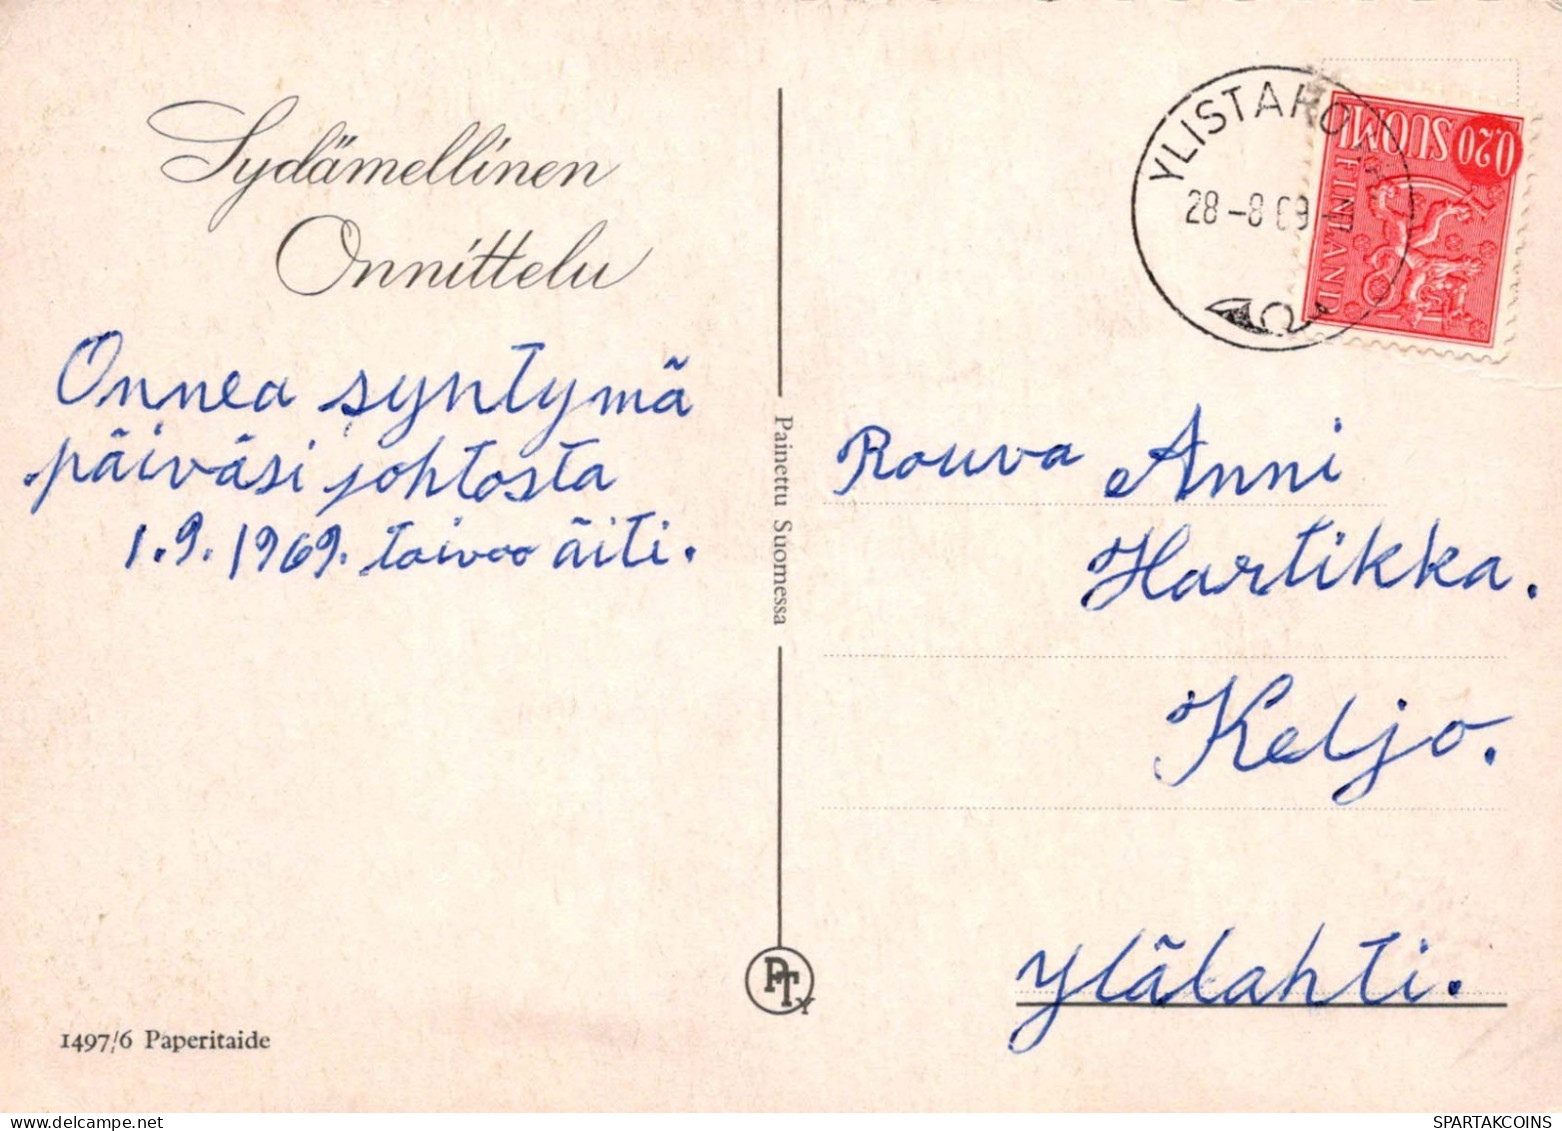 Sydämellinen
Onnittelu
Onnea syntymä
päiväsi johtosta
1.9.1969. toivoo äiti.
1497/6 Paperitaide
Painettu Suomessa
PTY
YLISTARO
28-8 69
0,20 SUOMI
FINLAND
Rouva Anni
Hartikka.
Keljo.
Ylälahti.
Delcampe.net
SPARTAKCOINS